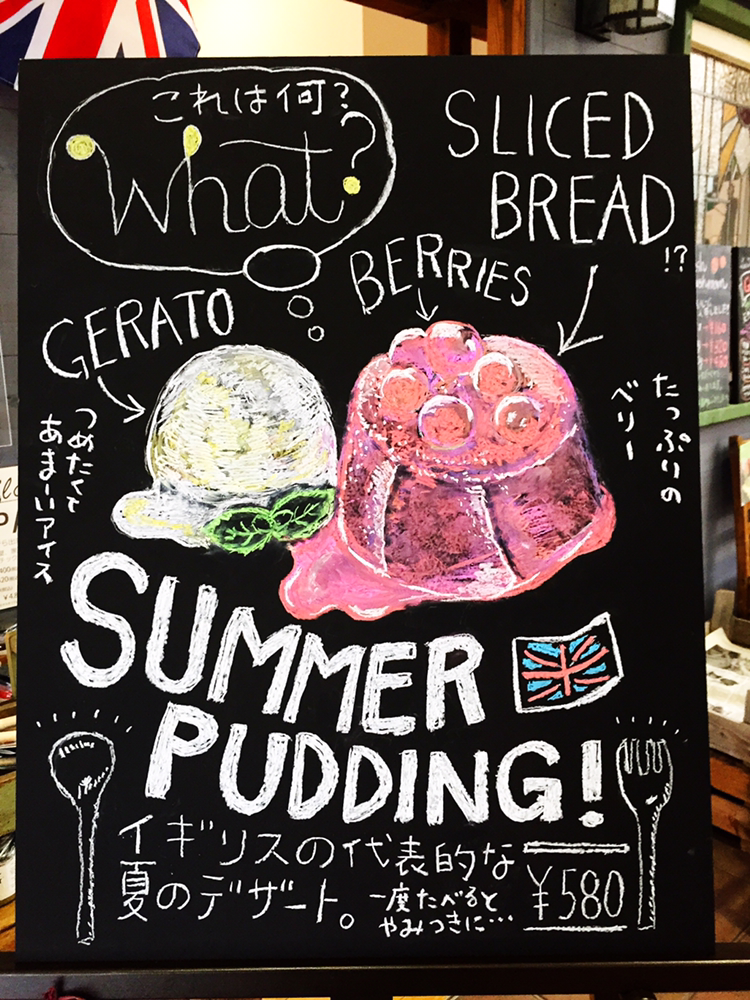 これは何?
What?
SLICED
BREAD
!?
BERRIES
GERATO
たっぷりの
ベリー
つめたくて
あまーいアイス
SUMMER
PUDDING!
イギリスの代表的な
夏のデザート。
一度たべると
やみつきに…
¥580